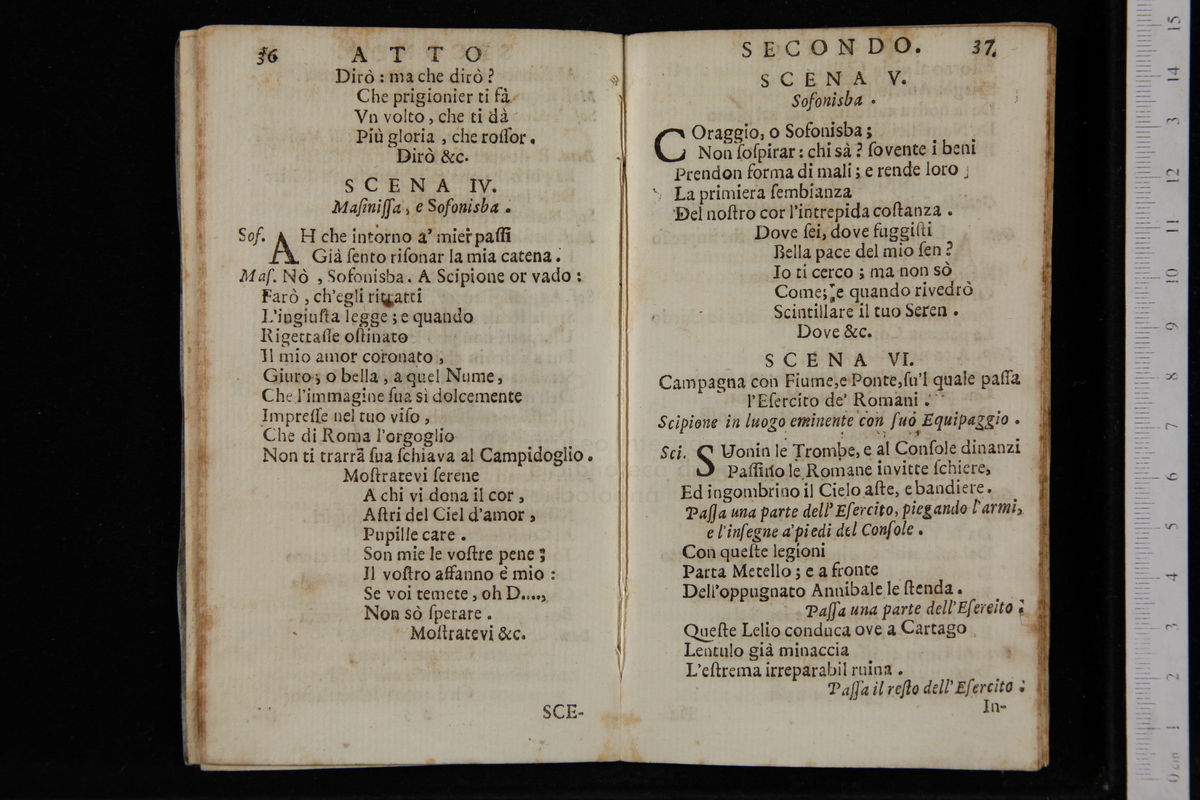 36 ATTO
Dirò : ma che dirò ?
Che prigionier ti fà
Vn volto , che ti dà
Più gloria , che roſſor .
Dirò &c.
SCENA IV.
Maſiniſſa , e Sofonisba .
Sof. AH che intorno a' miei paſſi
Già ſento riſonar la mia catena .
Maſ. Nò , Sofonisba . A Scipione or vado :
Farò , ch'egli ritratti
L'ingiuſta legge ; e quando
Rigettaſſe oſtinato
Il mio amor coronato ,
Giuro , o bella , a quel Nume ,
Che l'immagine ſua sì dolcemente
Impreſſe nel tuo viſo ,
Che di Roma l'orgoglio
Non ti trarrà ſua ſchiava al Campidoglio .
Moſtratevi ſerene
A chi vi dona il cor ,
Aſtri del Ciel d'amor ,
Pupille care .
Son mie le voſtre pene ;
Il voſtro affanno è mio :
Se voi temete , oh D....,
Non sò ſperare .
Moſtratevi &c.
SCE-
SECONDO. 37
SCENA V.
Sofonisba .
COraggio, o Sofonisba ;
Non ſoſpirar : chi sà ? ſovente i beni
Prendon forma di mali ; e rende loro
La primiera ſembianza
Del noſtro cor l'intrepida coſtanza .
Dove ſei, dove fuggiſti
Bella pace del mio ſen ?
Io ti cerco ; ma non sò
Come; e quando rivedrò
Scintillare il tuo Seren .
Dove &c.
SCENA VI.
Campagna con Fiume,e Ponte,ſu'l quale paſſa
l'Eſercito de' Romani .
Scipione in luogo eminente con ſuo Equipaggio .
Sci. SUonin le Trombe, e al Conſole dinanzi
Paſſino le Romane invitte ſchiere,
Ed ingombrino il Cielo aſte, e bandiere .
Paſſa una parte dell'Eſercito, piegando l'armi,
e l'inſegne a'piedi del Conſole .
Con queſte legioni
Parta Metello ; e a fronte
Dell'oppugnato Annibale le ſtenda .
Paſſa una parte dell'Eſereito :
Queſte Lelio conduca ove a Cartago
Lentulo già minaccia
L'eſtrema irreparabil ruina .
Paſſa il reſto dell'Eſercito :
In-
0 cm 1 2 3 4 5 6 7 8 9 10 11 12 13 14 15